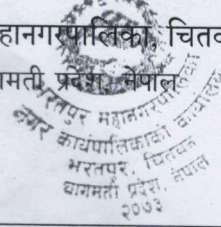 हानगरपालिका, चितव
गमती प्रदेश, नेपाल
भरतपुर महानगरपालिका
नगर कार्यपालिकाको कार्यालय
भरतपुर, चितवन
बागमती प्रदेश, नेपाल
२०७३